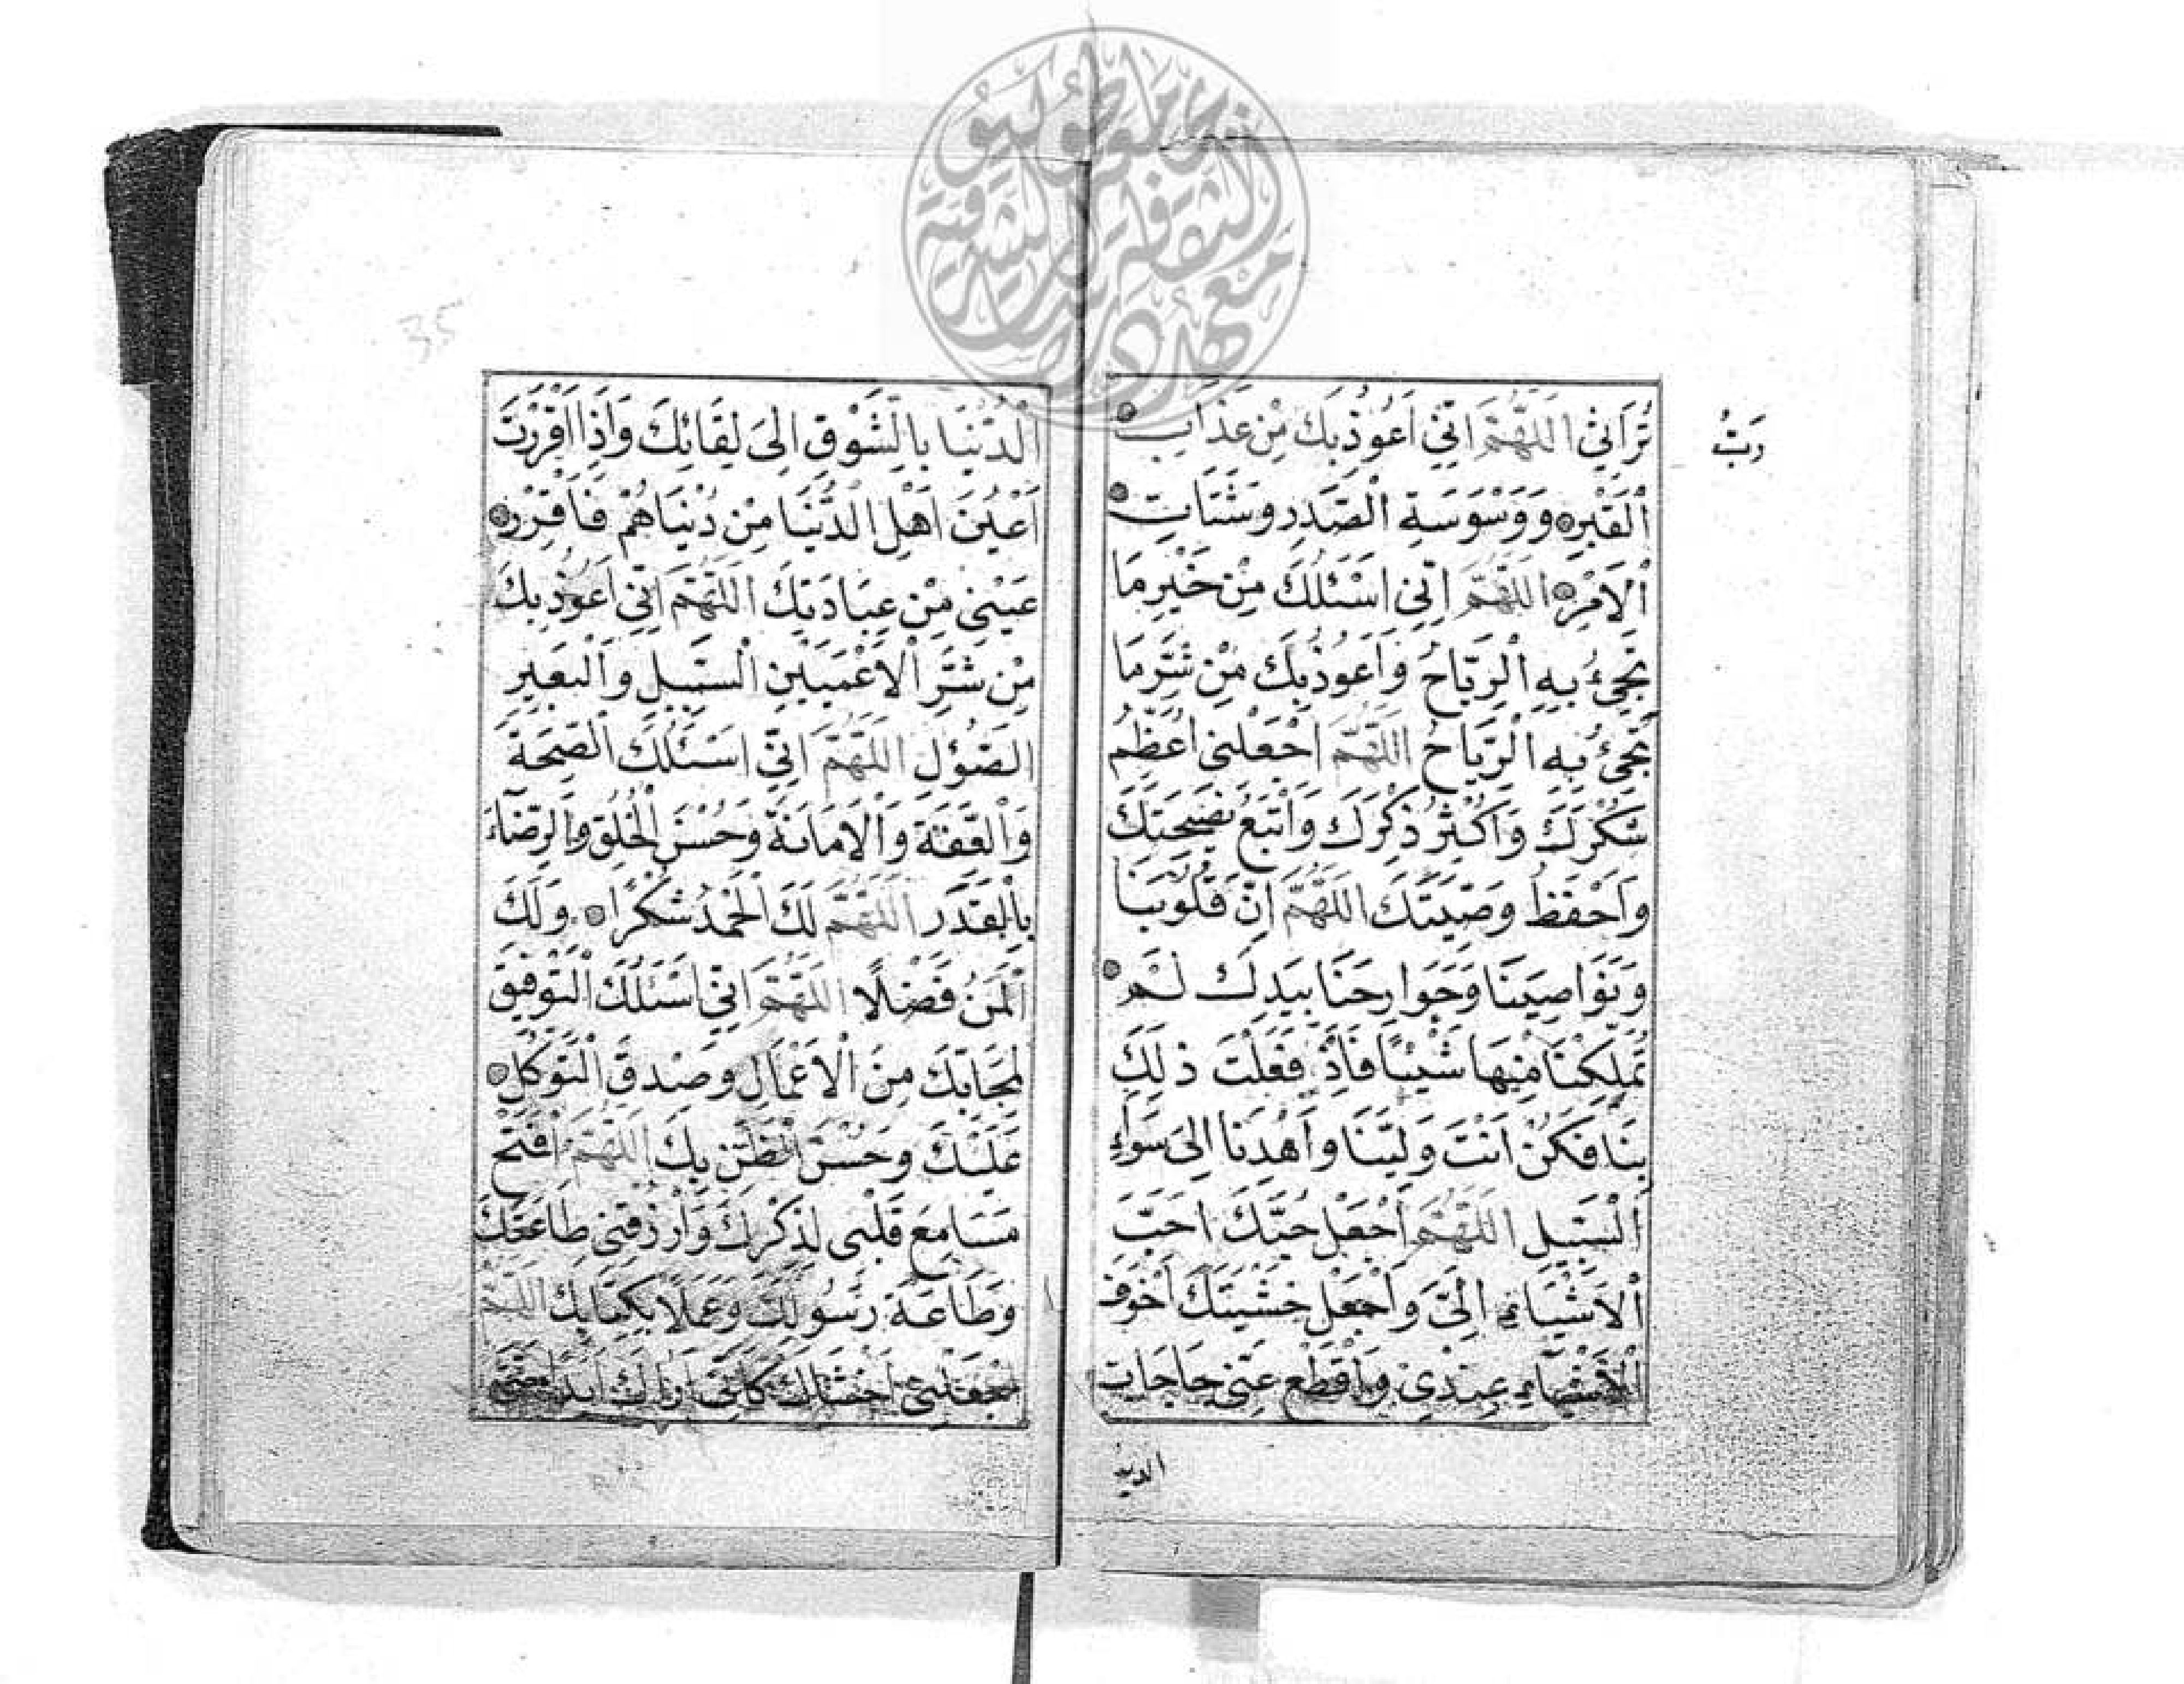 معهد الثقافة والدراسات الشرقية
جامعة طوكيو
رَبِّ
تُرَابِي اَللّٰهُمَّ اِنِّي اَعُوذُ بِكَ مِنْ عَذَابِ
الْقَبْرِ وَوَسْوَسَةِ الْصَّدْرِ وَشَتَاتِ
الْاَمْرِ اَللّٰهُمَّ اِنِّي اَسْئَلُكَ مِنْ خَيْرِ مَا
تَجِئُ بِهِ الْرِّيَاحُ وَاَعُوذُ بِكَ مِنْ شَرِّ مَا
تَجِئُ بِهِ الْرِّيَاحُ اَللّٰهُمَّ اجْعَلْنِي اُعَظِّمُ
شُكْرَكَ وَاُكْثِرُ ذِكْرَكَ وَاَتَّبِعُ نَصِيحَتَكَ
وَاَحْفَظُ وَصِيَّتَكَ اَللّٰهُمَّ اِنَّ قُلُوبَنَا
وَنَوَاصِيَنَا وَجَوَارِحَنَا بِيَدِكَ لَمْ
تُمَلِّكْنَا مِنْهَا شَيْئًا فَاِذْ فَعَلْتَ ذٰلِكَ
بِنَا فَكُنْ اَنْتَ وَلِيَّنَا وَاَهْدِنَا اِلَى سَوَاءِ
الْسَّبِيلِ اَللّٰهُمَّ اَجْعَلْ حُبَّكَ اَحَبَّ
الْاَشْيَاءِ اِلَيَّ وَاَجْعَلْ خَشْيَتَكَ اَخْوَفَ
الْاَشْيَاءِ عِنْدِي وَاقْطَعْ عَنِّي حَاجَاتِ
الدنيا
35
الْدُّنْيَا بِالْشَّوْقِ اِلَى لِقَائِكَ وَاِذَا اَقْرَرْتَ
اَعْيُنَ اَهْلِ الْدُّنْيَا مِنْ دُنْيَاهُمْ فَاَقْرِرْ
عَيْنِي مِنْ عِبَادَتِكَ اَللّٰهُمَّ اِنِّي اَعُوذُ بِكَ
مِنْ شَرِّ الْاَعْمَيَيْنِ الْسَّيْلِ وَالْبَعِيرِ
الصَّؤُلِ اَللّٰهُمَّ اِنِّي اَسْئَلُكَ الْصِّحَّةَ
وَالْعِفَّةَ وَالْاَمَانَةَ وَحُسْنَ الْخُلُقِ وَالْرِّضَاءَ
بِالْقَدَرِ اَللّٰهُمَّ لَكَ الْحَمْدُ شُكْرًا وَلَكَ
الْمَنُّ فَضْلًا اَللّٰهُمَّ اِنِّي اَسْئَلُكَ الْتَّوْفِيقَ
لِمَحَابِّكَ مِنَ الْاَعْمَالِ وَصِدْقَ الْتَّوَكُّلِ
عَلَيْكَ وَحُسْنَ الْظَّنِّ بِكَ اَللّٰهُمَّ افْتَحْ
مَسَامِعَ قَلْبِي لِذِكْرِكَ وَارْزُقْنِي طَاعَتَكَ
وَطَاعَةَ رَسُولِكَ وَعَمَلًا بِكِتَابِكَ اَللّٰهُمَّ
اجْعَلْنِي اَخْشَاكَ كَاَنِّي اَرَاكَ اَبَدًا حَتَّى